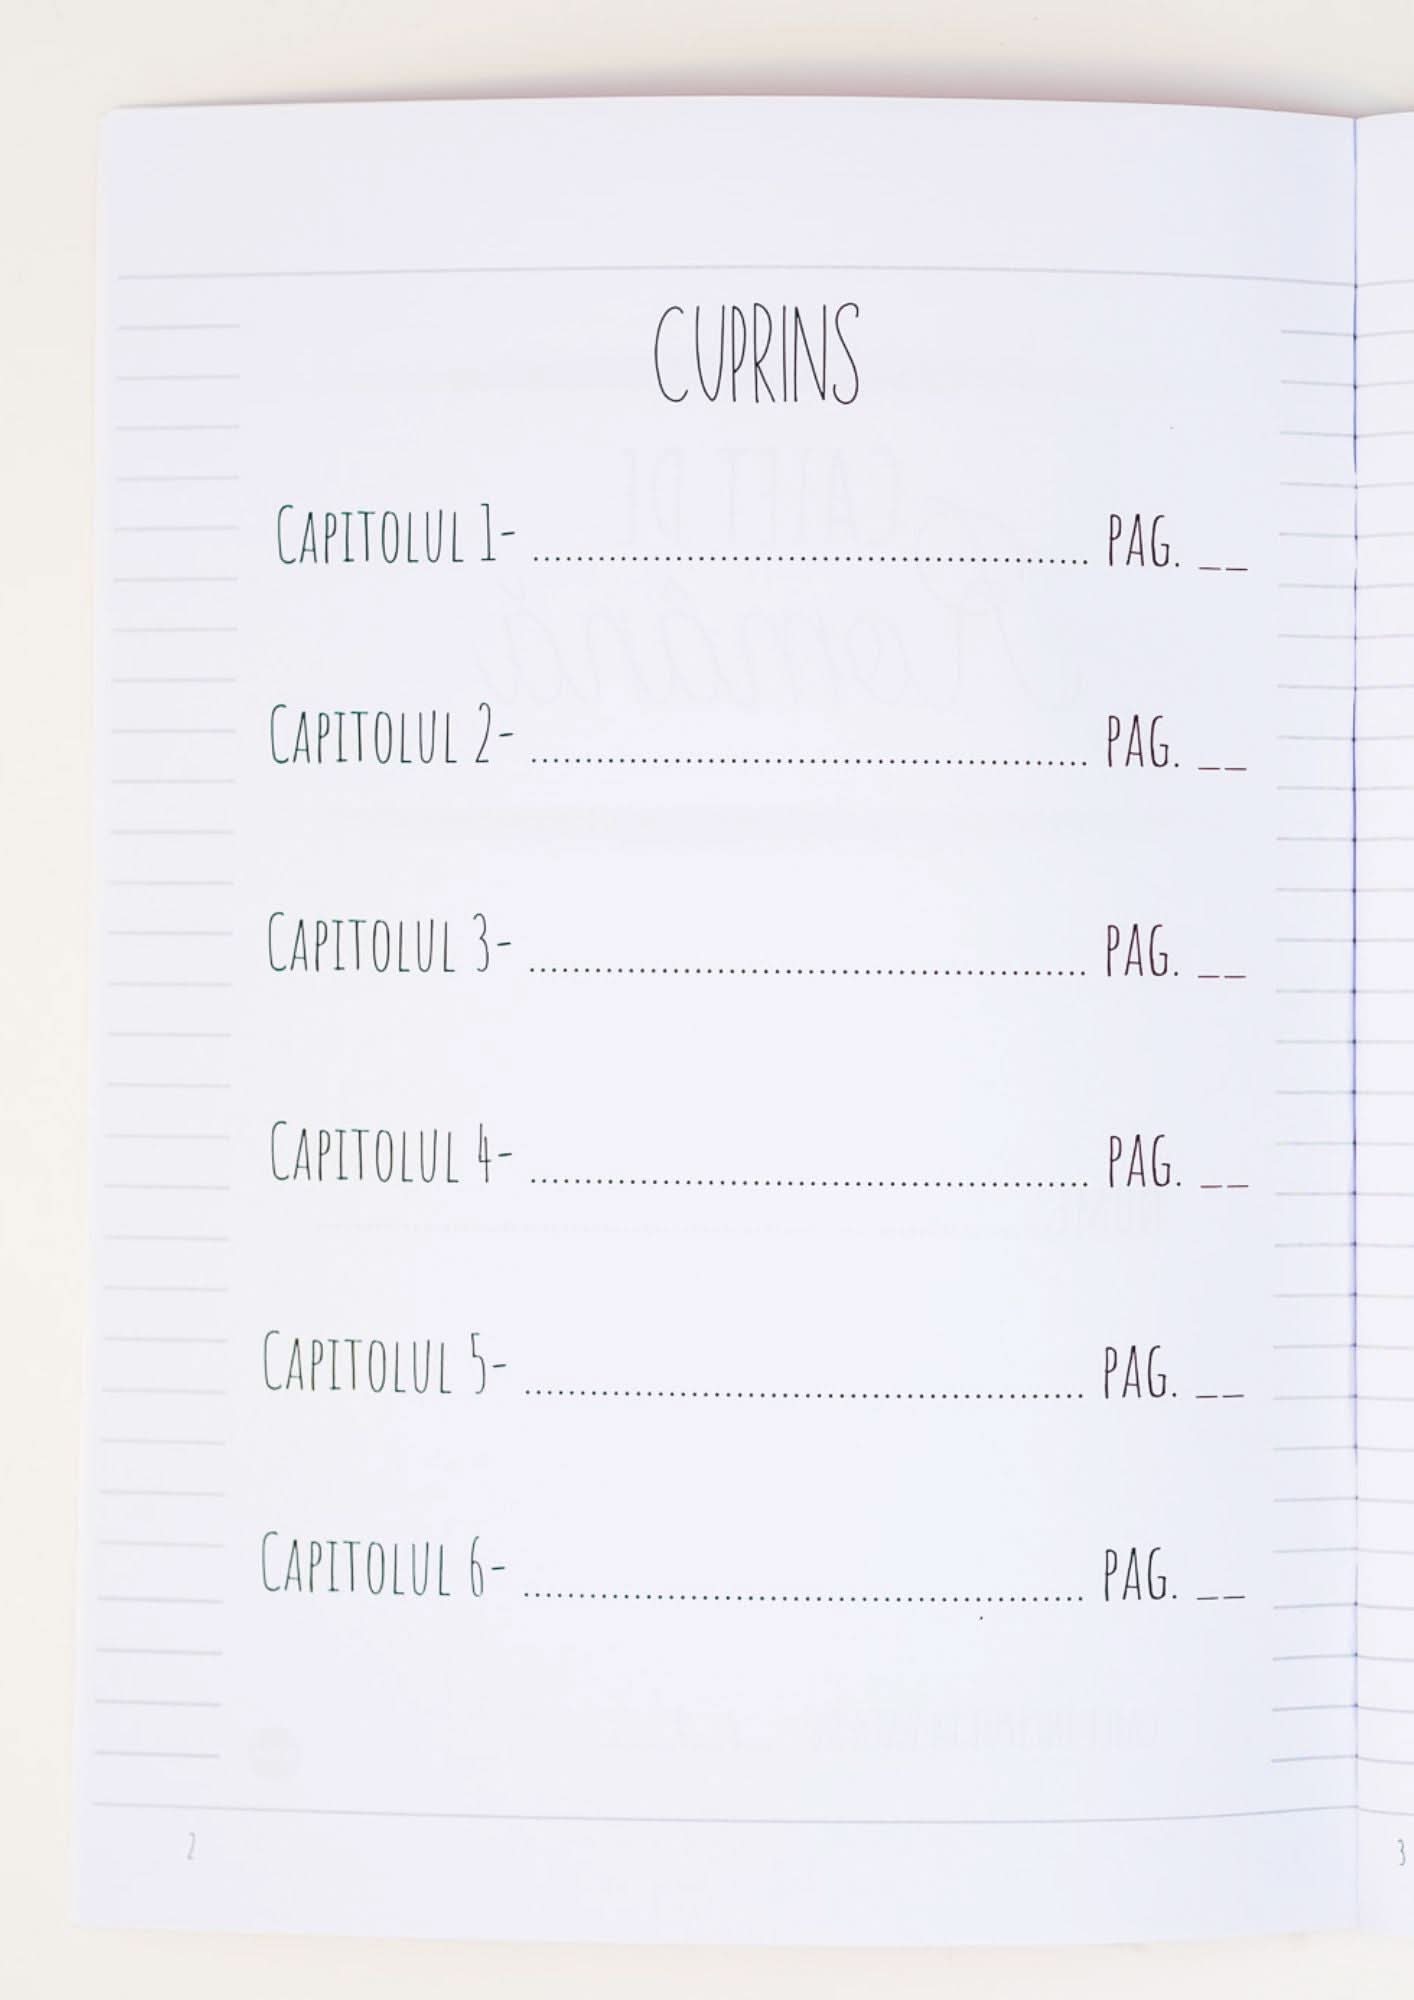 CUPRINS
CAPITOLUL 1- ........................................................ PAG. __
CAPITOLUL 2- ........................................................ PAG. __
CAPITOLUL 3- ........................................................ PAG. __
CAPITOLUL 4- ........................................................ PAG. __
CAPITOLUL 5- ........................................................ PAG. __
CAPITOLUL 6- ........................................................ PAG. __
2
3